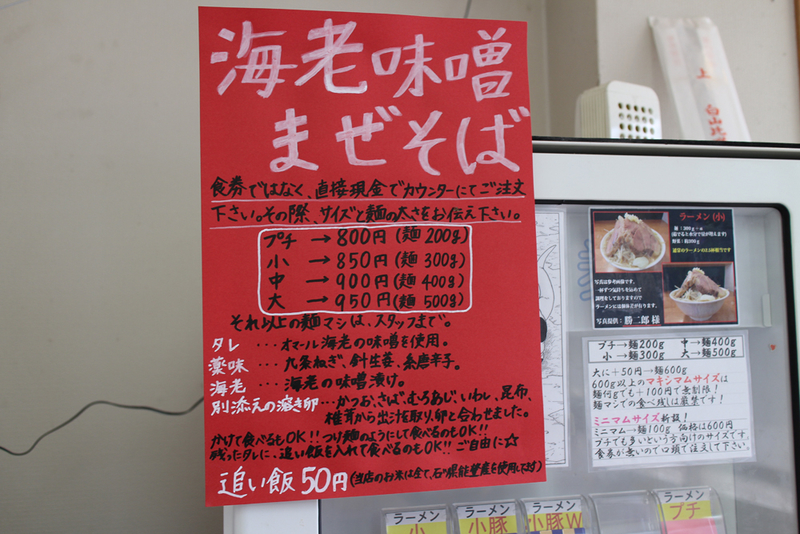 海老味噌
まぜそば
食券ではなく、直接現金でカウンターにてご注文
下さい。その際、サイズと麺の太さをお伝え下さい。
プチ → 800円 (麺 200g)
小 → 850円 (麺 300g)
中 → 900円 (麺 400g)
大 → 950円 (麺 500g)
それ以上の麺マシは、スタッフまで。
タレ ・・・オマール海老の味噌を使用。
薬味 ・・・九条ねぎ、針生姜、糸唐辛子。
海老 ・・・海老の味噌漬け。
別添えの溶き卵・・・かつお、さば、むろあじ、いわし、昆布、
椎茸から出汁を取り、卵と合わせました。
かけて食べるもOK!!つけ麺のようにして食べるのもOK!!
残ったタレに、追い飯を入れて食べるのもOK!!ご自由に☆
追い飯 50円 (当店のお米は全て、石川県能登産を使用してます)
上
白山比
ラーメン(小)
写真提供:勝二郎 様
プチ→麺200g 中→麺400g
小→麺300g 大→麺500g
大に+50円→麺600g
600g以上のマキシマムサイズは
麺何gでも+100円で無制限!
麺マシでの食べ残しは厳禁です!
ミニマムサイズ新設!
ミニマム→麺100g 価格は600円
プチでも多いという方向けのサイズです
食券が無いので口頭で注文して下さい
ラーメン
小
ラーメン
小豚
ラーメン
小豚W
ラーメン
プチ